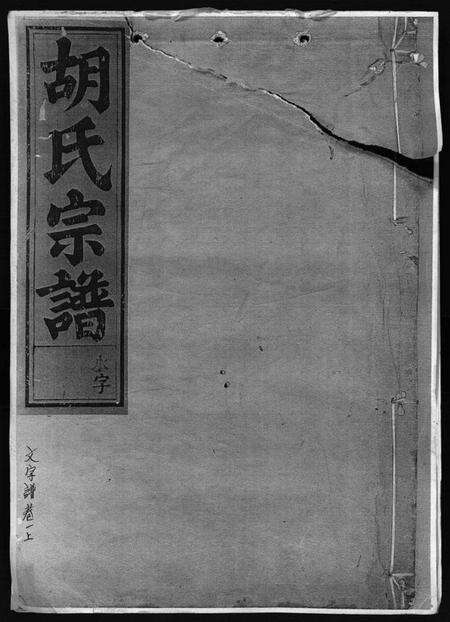 胡氏宗譜
字
文字譜卷一上